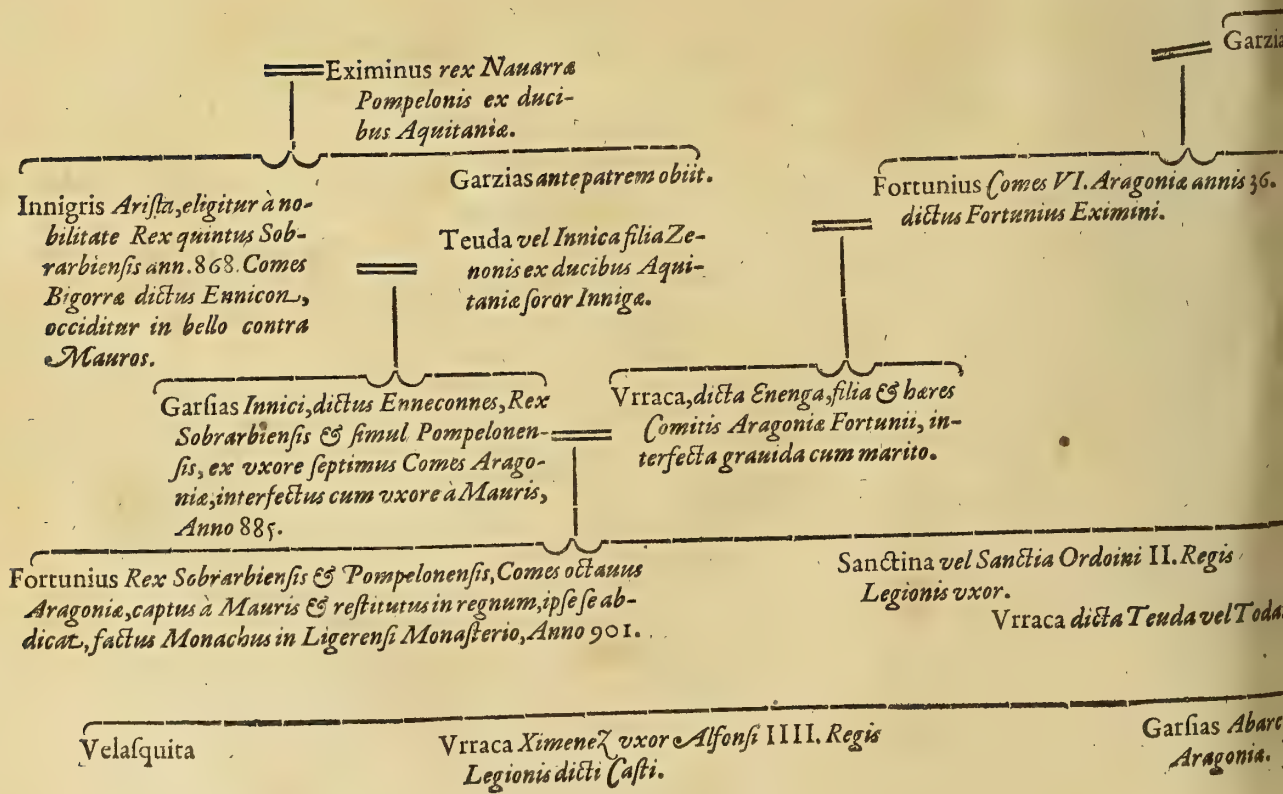 Eximinus rex Nauarræ
Pompelonis ex duci-
bus Aquitaniæ.
Garzia
Innigris Ariſta, eligitur à no-
bilitate Rex quintus Sob-
rarbienſis ann. 868. Comes
Bigorræ dictus Ennicon,
occiditur in bello contra
Mauros.
Garzias ante patrem obiit.
Teuda vel Innica filia Ze-
nonis ex ducibus Aqui-
taniæ ſoror Innigæ.
Fortunius Comes VI. Aragoniæ annis 36.
dictus Fortunius Eximini.
Garſias Innici, dictus Enneconnes, Rex
Sobrarbienſis & ſimul Pompelonen-
ſis, ex vxore ſeptimus Comes Arago-
niæ, interfectus cum vxore à Mauris,
Anno 885.
Vrraca, dicta Enenga, filia & hæres
Comitis Aragoniæ Fortunii, in-
terfecta grauida cum marito.
Fortunius Rex Sobrarbienſis & Pompelonenſis, Comes octauus
Aragoniæ, captus à Mauris & reſtitutus in regnum, ipſe ſe ab-
dicat, factus Monachus in Ligerenſi Monaſterio, Anno 901.
Sanctina vel Sanctia Ordoini II. Regis
Legionis vxor.
Vrraca dicta Teuda vel Toda
Velaſquita
Vrraca Ximenez vxor Alfonſi IIII. Regis
Legionis dicti Caſti.
Garſias Abarc
Aragoniæ.